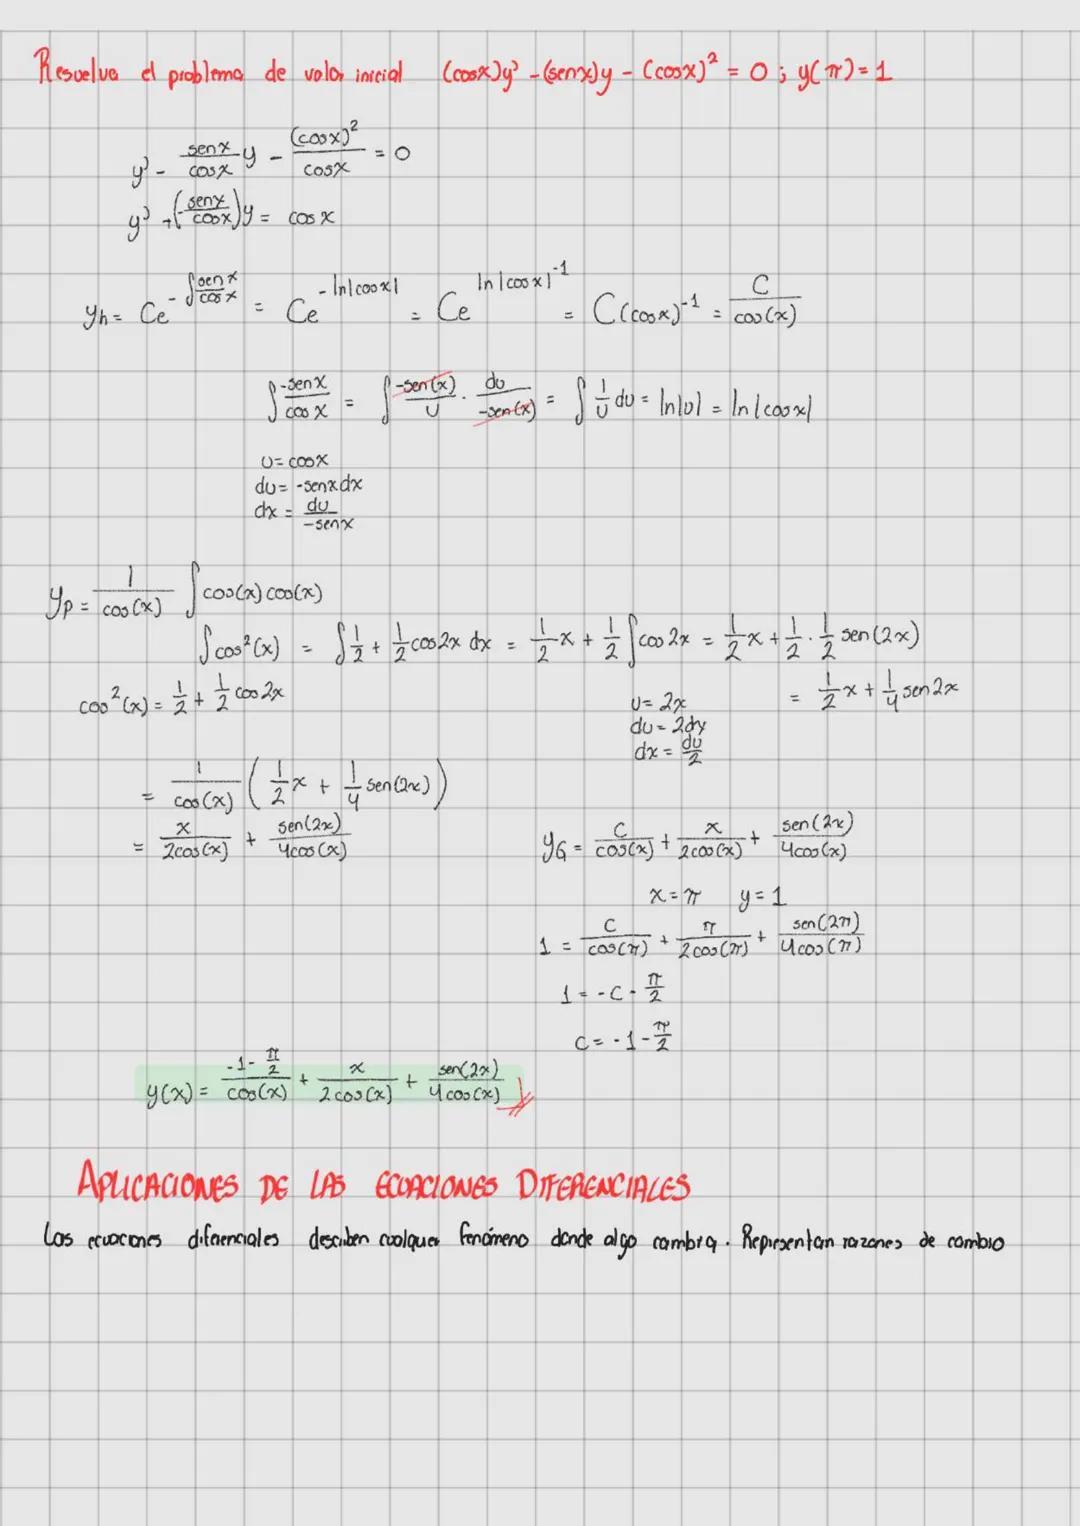 Resuelva el problema de valor inicial (cosx)y' - (senx)y - (cosx)² = 0 ; y(π) = 1
y' - senx/cosx y - (cosx)²/cosx = 0
y' + (-senx/cosx)y = cosx
yh = Ce^(-∫senx/cosx) = Ce^(-ln|cosx|) = Ce^(ln|cosx|^-1) = C(cosx)^-1 = C/cos(x)
∫-senx/cosx = ∫-sen(x)/u · du/-sen(x) = ∫1/u du = ln|u| = ln|cosx|
u = cosx
du = -senxdx
dx = du/-senx
yp = 1/cos(x) ∫cos(x)cos(x)
∫cos²(x) = ∫1/2 + 1/2 cos2x dx = 1/2 x + 1/2 ∫cos2x = 1/2 x + 1/2 · 1/2 sen(2x)
cos²(x) = 1/2 + 1/2 cos2x
= 1/2 x + 1/4 sen2x
u = 2x
du = 2dx
dx = du/2
= 1/cos(x) (1/2 x + 1/4 sen(2x))
= x/2cos(x) + sen(2x)/4cos(x)
yG = C/cos(x) + x/2cos(x) + sen(2x)/4cos(x)
x = π y = 1
1 = C/cos(π) + π/2cos(π) + sen(2π)/4cos(π)
1 = -C - π/2
C = -1 - π/2
y(x) = -1 - π/2/cos(x) + x/2cos(x) + sen(2x)/4cos(x)
APLICACIONES DE LAS ECUACIONES DIFERENCIALES
Las ecuaciones diferenciales describen cualquier fenómeno donde algo cambia. Representan razones de cambio